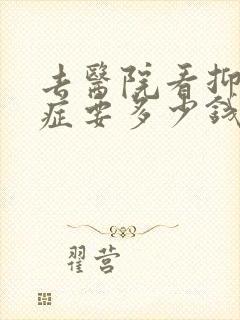 去醫院看抑
症要多少錢
翟营